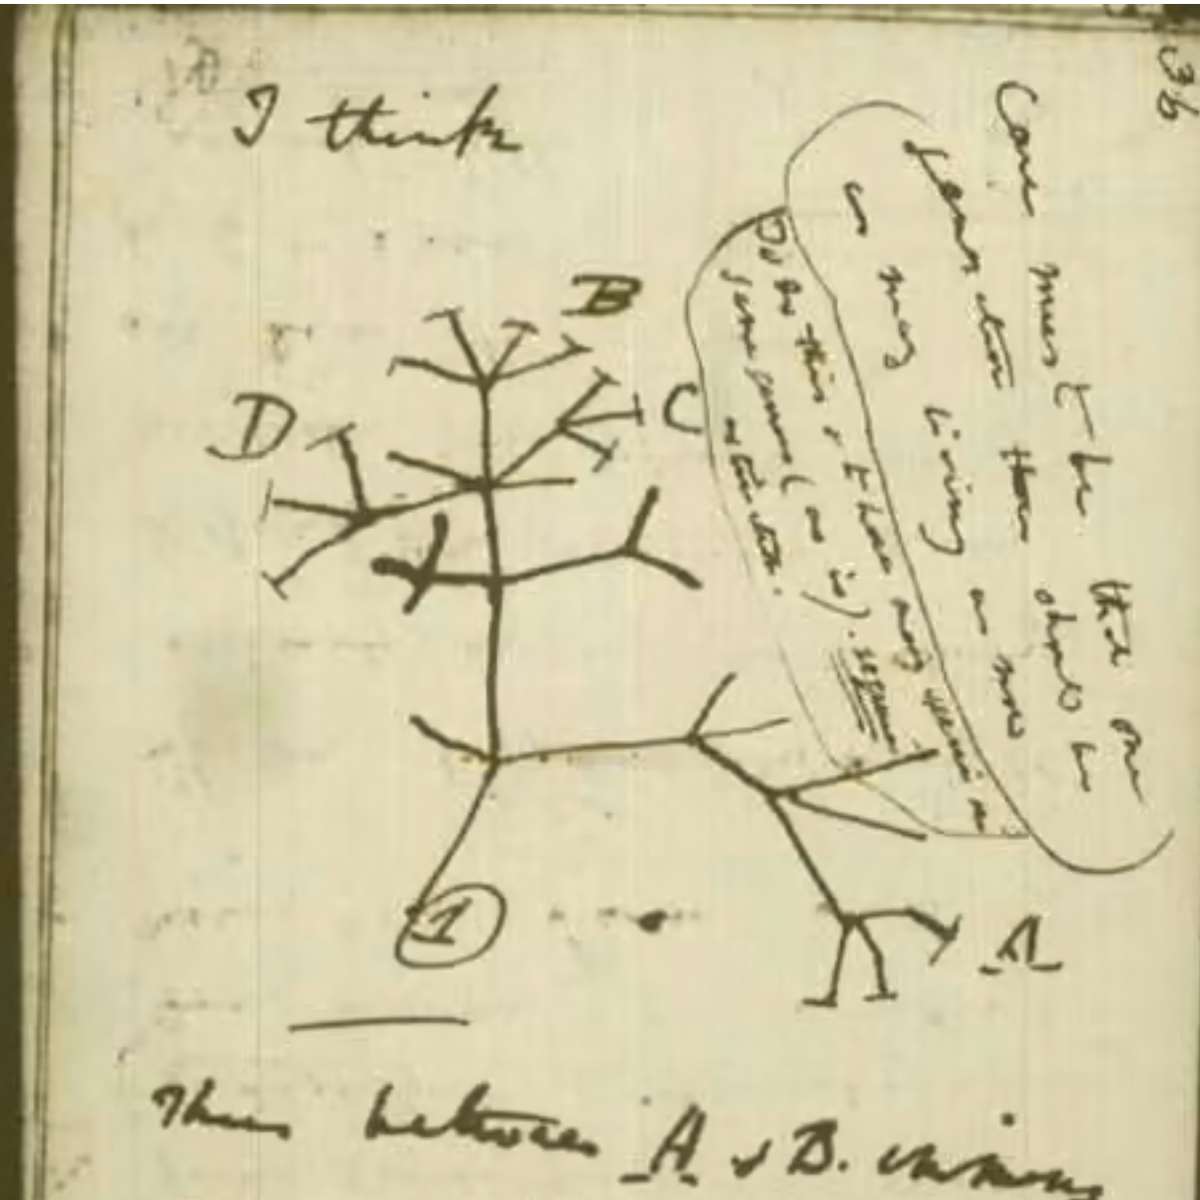 I think
36
Case must be that one
generation then should be
as many living as now
To do this & to have many species in
same genus (as is). requires
extinction.
B
D
C
1
A
Thus between A & B. immens